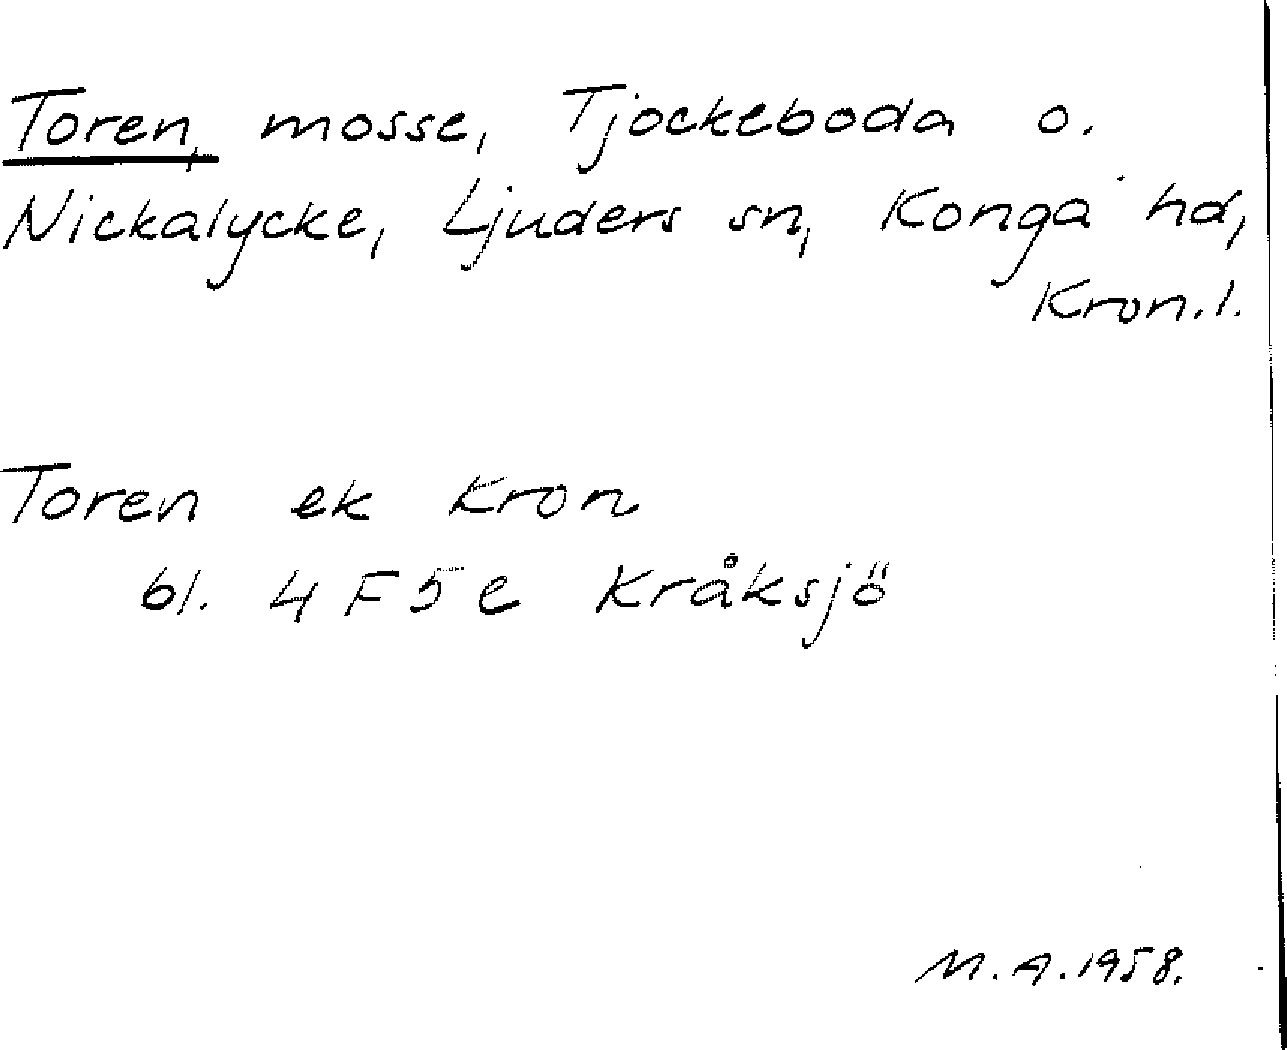 Toren, mosse, Tjockeboda o.
Nickalycke, Ljuders sn, Konga hd,
Kron.l.
Toren ek Kron
bl. 4 F 5 e Kråksjö
M.A. 1958.